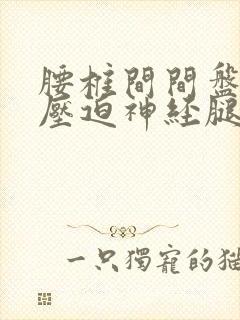 腰椎間間盤
壓迫神经腿
一只獨寵的猫